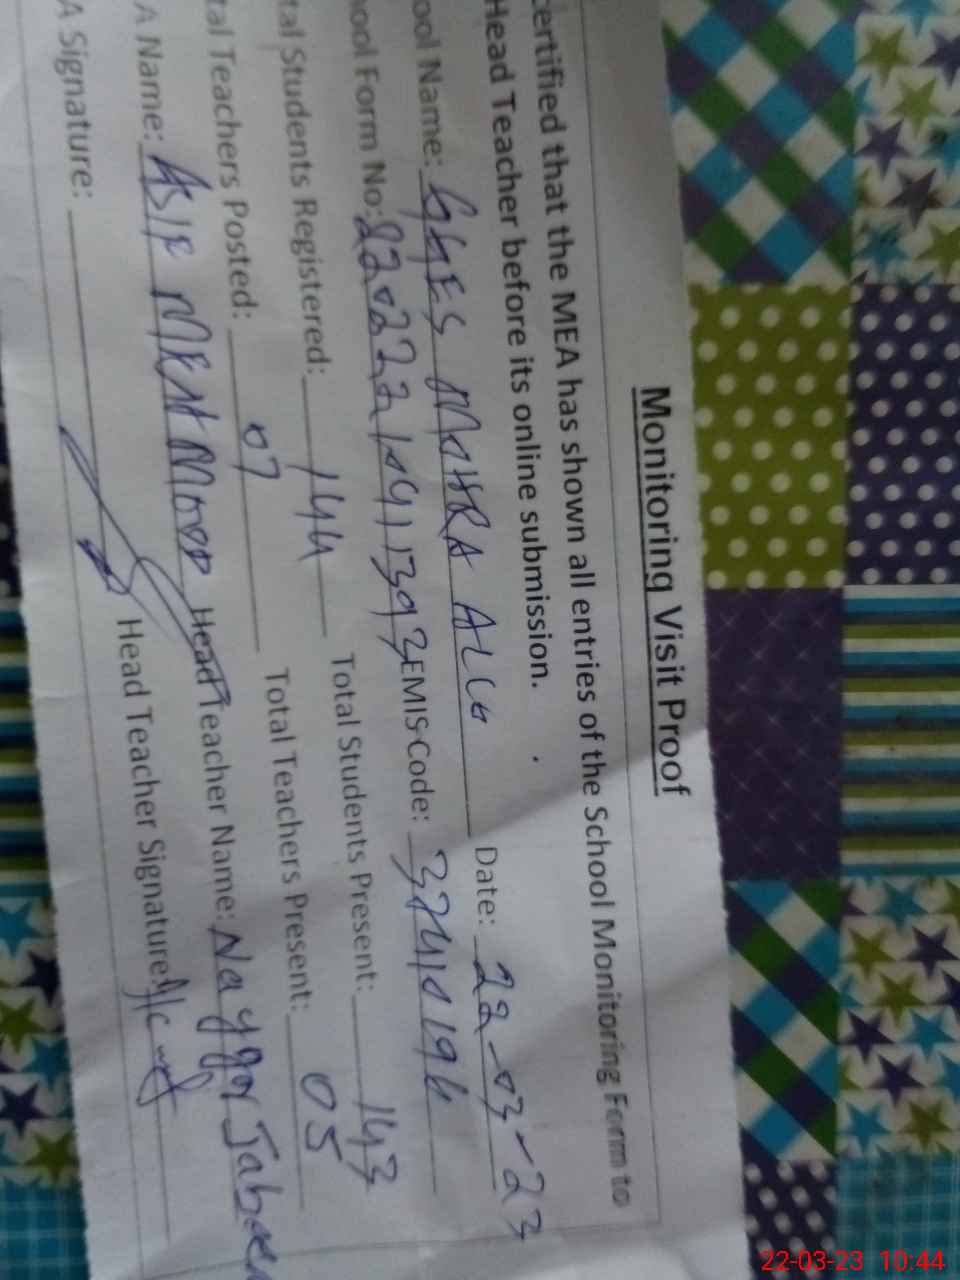 Monitoring Visit Proof
certified that the MEA has shown all entries of the School Monitoring Form to
Head Teacher before its online submission.
ool Name: GGES MOHRA ALGG Date: 22-03-23
ool Form No: EMIS Code:
tal Students Registered: 144 Total Students Present: 143
tal Teachers Posted: 07 Total Teachers Present: 05
A Name: ASIF MEHMOOD Head Teacher Name:
A Signature: Head Teacher Signature:
22-03-23 10:44